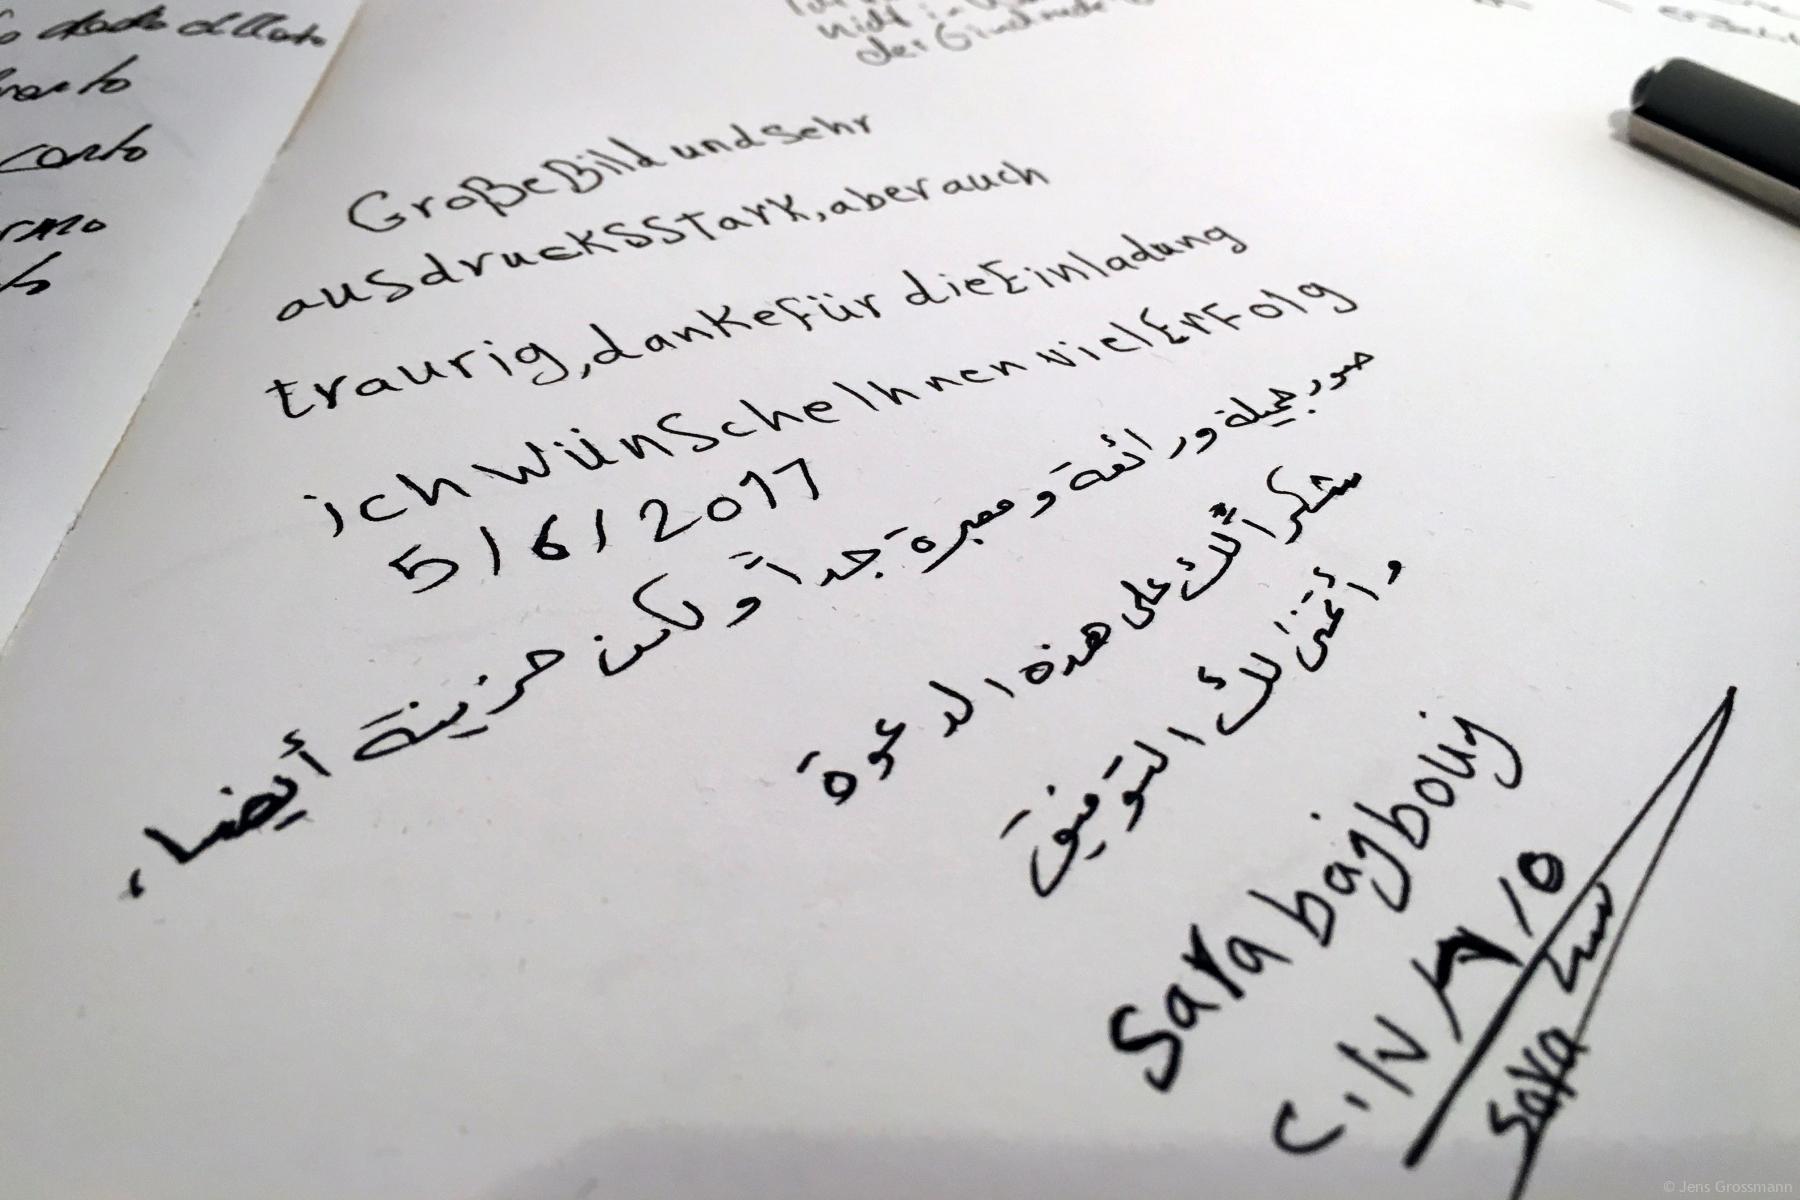 nicht in
Große Bild und sehr
ausdrucksstark, aber auch
traurig, danke für die Einladung
ich wünsche Ihnen viel Erfolg
5/6/2017
صور جميلة ورائعة و معبرة جداً ولكن حزينة أيضا،
شكراً لك على هذه الدعوة
وأتمنى لك التوفيق
Sara bagbouj
٢٠١٧/ /٥
Sara
© Jens Grossmann